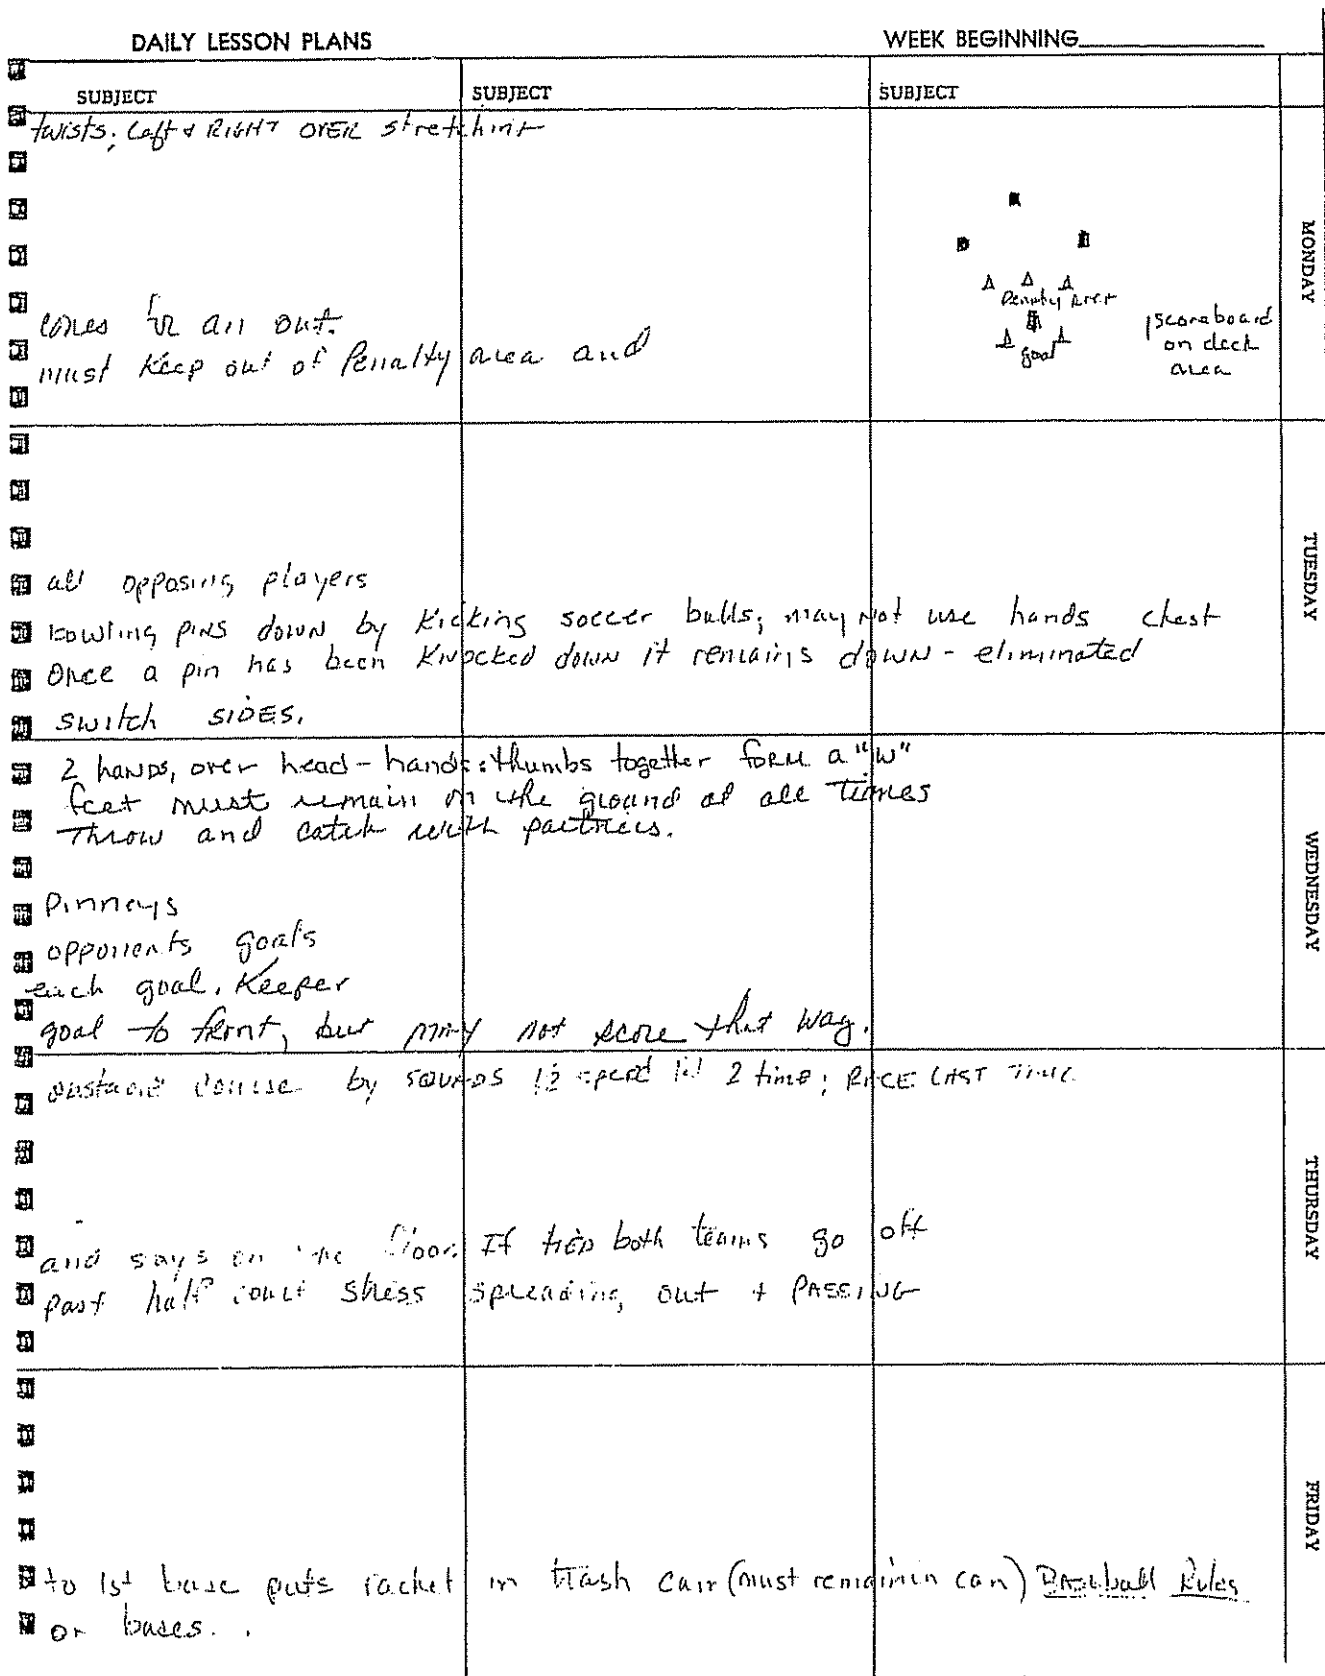 DAILY LESSON PLANS WEEK BEGINNING
SUBJECT SUBJECT SUBJECT
twists; Left & RIGHT OVER
MONDAY
Penalty Area
goal
scoreboard
on deck
area
cones all out.
must keep out of Penalty area and
TUESDAY
all opposing players
bowling pins down by kicking soccer balls; may not use hands chest
Once a pin has been knocked down it remains down - eliminated
switch SIDES.
WEDNESDAY
2 hands, over head - hands: thumbs together form a "W"
feet must remain on the ground at all times
Throw and catch with partners.
Pinneys
opponents goals
each goal. Keeper
goal to front, but may not score that way.
THURSDAY
course by SOUNDS 2 time; RACE LAST TIME
and says on the floor. If tied both teams go off
past half court stress spreading out + PASSING
FRIDAY
to 1st base puts racket in trash can (must remain in can) Baseball Rules
or bases.